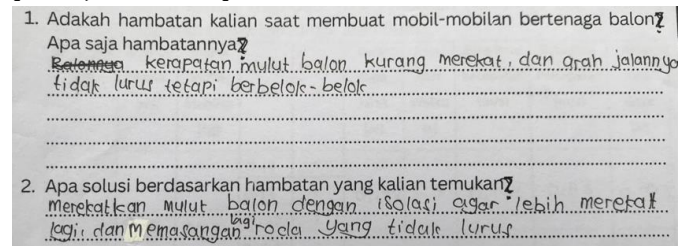 1. Adakah hambatan kalian saat membuat mobil-mobilan bertenaga balon?
Apa saja hambatannya?
kerapatan mulut balon kurang merekat, dan arah jalannya
tidak lurus tetapi berbelok-belok
2. Apa solusi berdasarkan hambatan yang kalian temukan?
merekatkan mulut balon dengan isolasi agar lebih merekat
lagi dan memasangan lagi roda yang tidak lurus